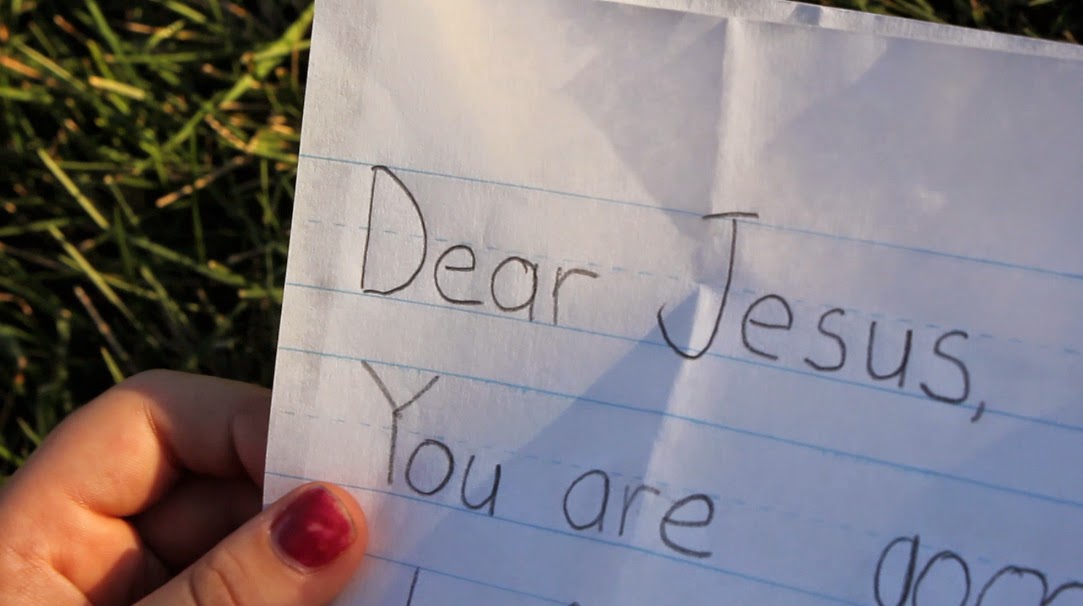 Dear Jesus,
You are